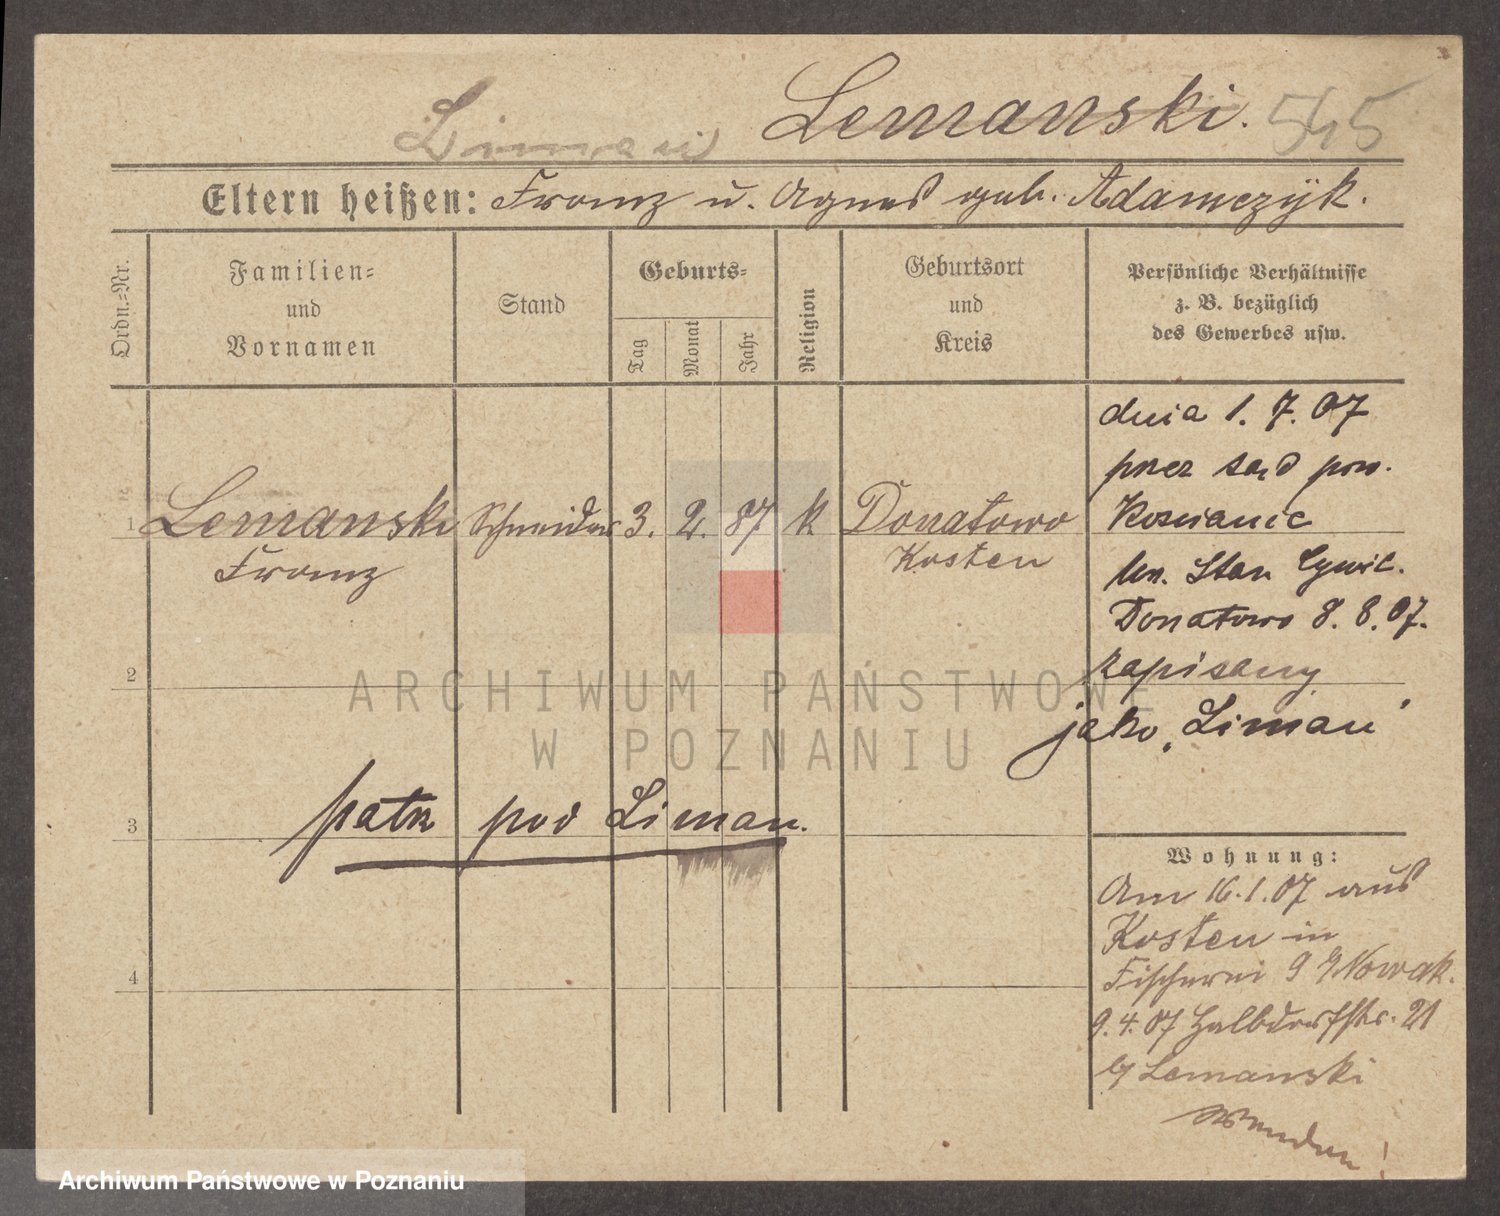 Liman Lemanski. 545
Eltern heißen: Franz u. Agnes geb. Adamczÿk.
Ordn.-Nr.
Familien-
und
Vornamen
Stand
Geburts-
Tag
Monat
Jahr
Religion
Geburtsort
und
Kreis
Persönliche Verhältnisse
z. B. bezüglich
des Gewerbes usw.
1 Lemanski Schneider 3. 2. 87 k Donatowo
Franz Kosten
dnia 1. 7. 07
przez sąd pow.
Kościanie
Stan Cywil.
Donatowo 8. 8. 07.
zapisany
jako „Liman"
2
patrz pod Liman.
3
4
Wohnung:
Am 16.1.07 aus
Kosten in
Fischerei 9 b/Nowak.
9.4.07 Halbdorfstr. 21
b/ Lemanski
Wenden!
ARCHIWUM PAŃSTWOWE
W POZNANIU
Archiwum Państwowe w Poznaniu